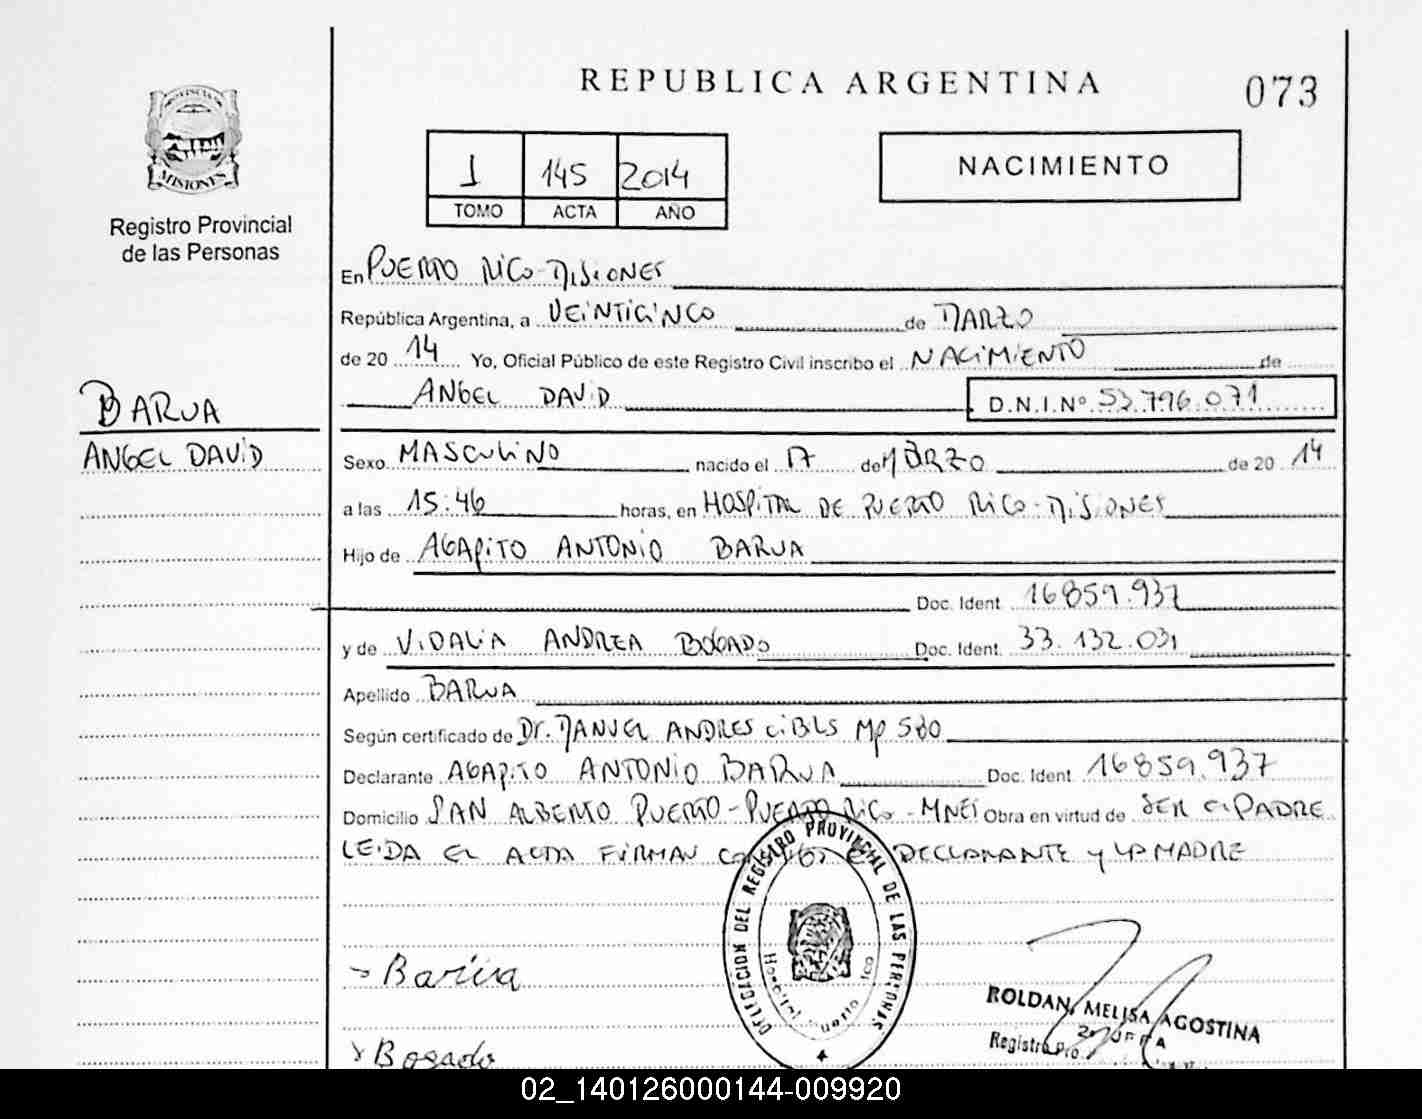 REPUBLICA ARGENTINA
073
PROVINCIA DE
MISIONES
Registro Provincial
de las Personas
1 145 2014
TOMO ACTA AÑO
NACIMIENTO
En PUERTO RICO - MISIONES
República Argentina, a VEINTICINCO de MARZO
de 20 14 Yo, Oficial Público de este Registro Civil inscribo el NACIMIENTO de
ANGEL DAVID D.N.I.Nº 53.796.071
BARUA
ANGEL DAVID
Sexo MASCULINO nacido el 17 de MARZO de 20 14
a las 15:46 horas, en HOSPITAL DE PUERTO RICO - MISIONES
Hijo de AGAPITO ANTONIO BARUA
Doc. Ident. 16859.937
y de VIDALIA ANDREA BOGADO Doc. Ident. 33.132.031
Apellido BARUA
Según certificado de Dr. MANUEL ANDRES CIBLS MP 580
Declarante AGAPITO ANTONIO BARUA Doc. Ident. 16859.937
Domicilio SAN ALBERTO PUERTO - PUERTO RICO - MNES Obra en virtud de SER EL PADRE
LEIDA EL ACTA FIRMAN CONMIGO EL DECLARANTE Y LA MADRE
DELEGACION DEL REGISTRO PROVINCIAL DE LAS PERSONAS
Hospital Puerto Rico
Barúa
Bogado
ROLDAN, MELISA AGOSTINA
Registro Pro
02_140126000144-009920